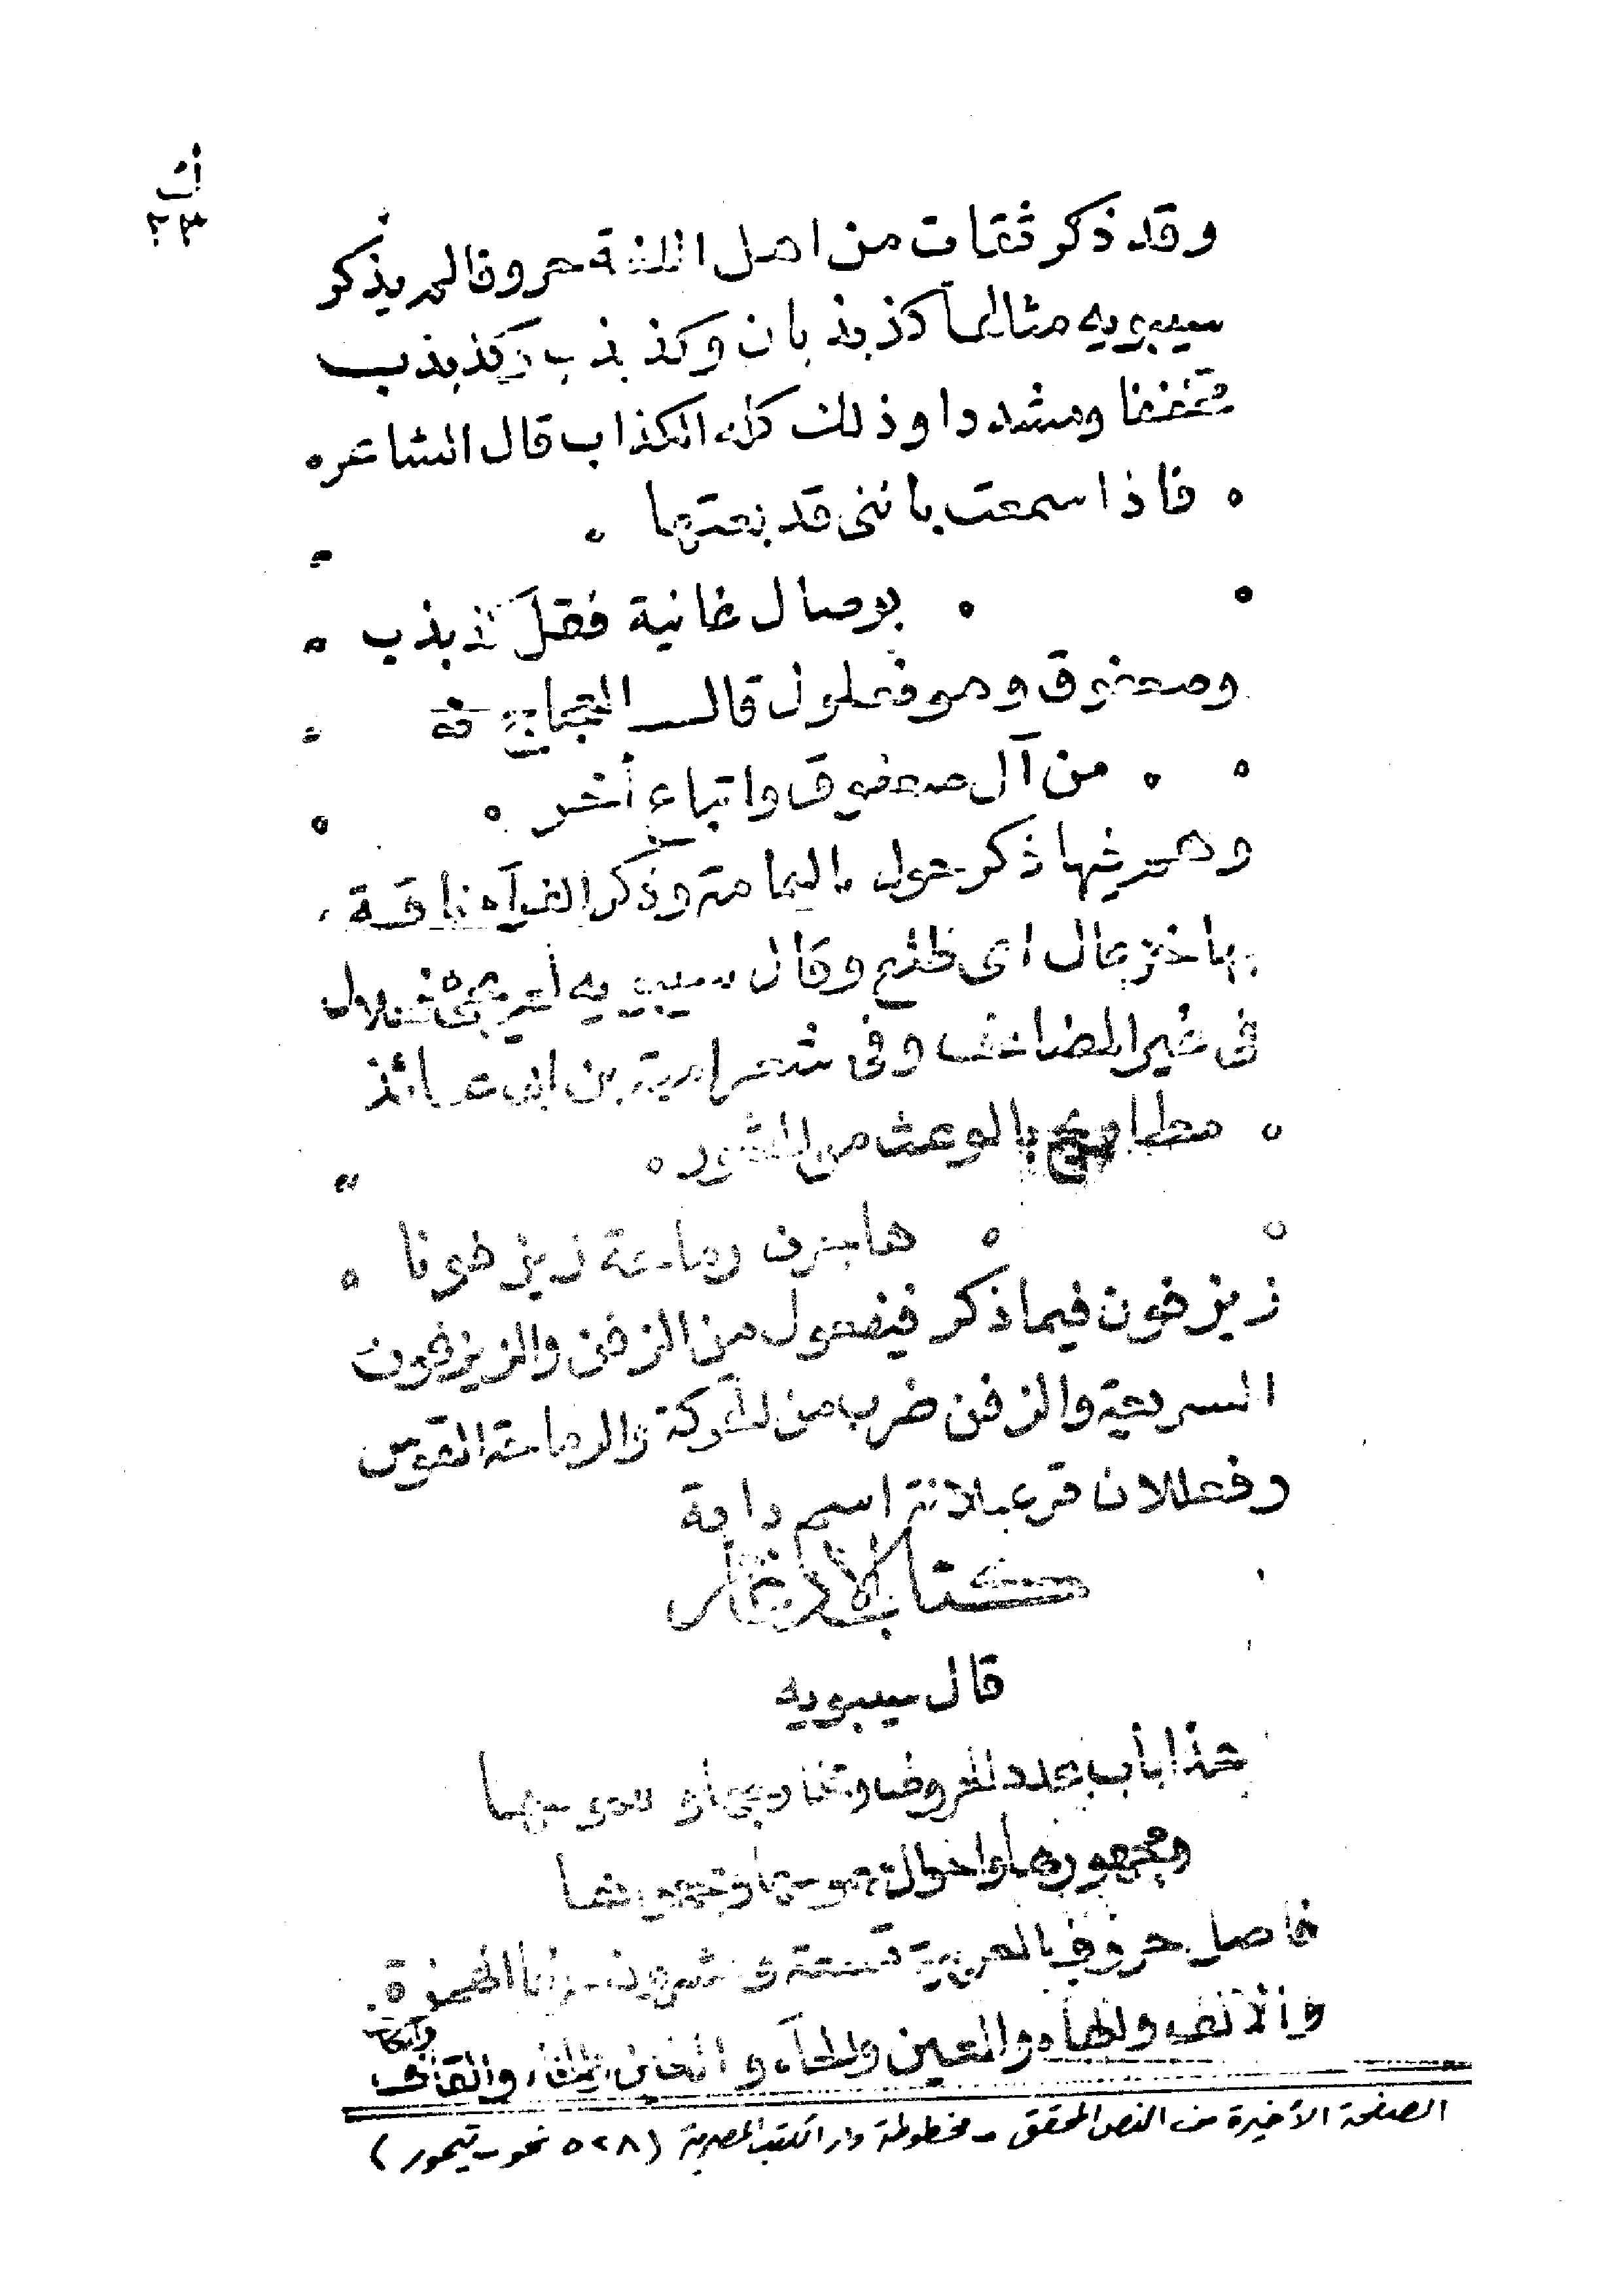 ٢٣
وقد ذكر ثقات من اهل اللغة حروفا لم يذكر
سيبويه مثالها كذبذبان وكذبذب وكذبذب
مخففا ومشددا وذلك كله الكذاب قال الشاعر
فاذا سمعت بانني قد بعتها
بوصال غانية فقل كذبذب
وصعفوق وهو فعلول قال العجاج
من آل صعفوق واتباع أخر
ذكر خول باليمامة وذكر الفرآء ناقة
بها خزعال اى ظلع وقال سيبويه لم يجئ فعلال
فى غير المضاعف وفى شعر امية بن ابى عائذ
مطاريح بالوعث
رماعة زيزفونا
زيزفون فيما ذكر فيفعول من الزفن والزيزفون
السريعة والزفن ضرب من الحركة والرماعة القوس
وفعللان قرعبلانة اسم دابة
كتاب الادغام
قال سيبويه
هذا باب عدد الحروف ومخارجها ومهموسها
ومجهورها واحوال
فاصل حروف العربية تسعة وعشرون حرفا الهمزة
والألف والهاء والعين والحآء والغين والخاء والقاف
والكاف
الصفحة الأخيرة من النص المحقق - مخطوطة دار الكتب المصرية (٥٢٨ نحو - تيمور)